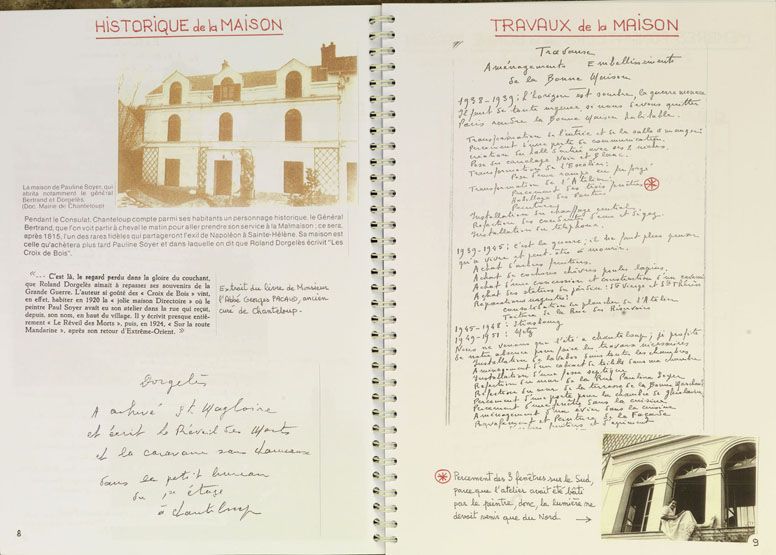 HISTORIQUE de la MAISON
La maison de Pauline Soyer, qui
abrita notamment le général
Bertrand et Dorgelès.
(Doc. Mairie de Chanteloup)
Pendant le Consulat, Chanteloup compte parmi ses habitants un personnage historique, le Général
Bertrand, que l'on voit partir à cheval le matin pour aller prendre son service à la Malmaison ; ce sera,
après 1815, l'un des rares fidèles qui partageront l'exil de Napoléon à Sainte-Hélène. Sa maison est
celle qu'achètera plus tard Pauline Soyer et dans laquelle on dit que Roland Dorgelès écrivit "Les
Croix de Bois".
«... C'est là, le regard perdu dans la gloire du couchant,
que Roland Dorgelès aimait à repasser ses souvenirs de la
Grande Guerre. L'auteur si goûté des « Croix de Bois » vint,
en effet, habiter en 1920 la « jolie maison Directoire » où le
peintre Paul Soyer avait eu son atelier dans la rue qui reçut,
depuis, son nom, en haut du village. Il y écrivit presque entiè-
rement « Le Réveil des Morts », puis, en 1924, « Sur la route
Mandarine », après son retour d'Extrême-Orient. »
Extrait du livre de Monsieur
l'Abbé Georges PACAUD, ancien
curé de Chanteloup.
Dorgelès
A achevé St. Magloire
et écrit le Réveil des Morts
et la caravane sans chameaux
dans le petit bureau
du 1er étage
à Chanteloup
8
TRAVAUX de la MAISON
Travaux
Aménagements Embellissements
de la Bonne Maison
1938-1939 : l'horizon est sombre, la guerre menace
Il faut de toute urgence si nous devons quitter
Paris rendre la Bonne Maison habitable.
Transformation de l'entrée et de la salle à manger
Percement d'une porte de communication.
Création du hall d'entrée avec ses 2 niches.
Pose du carrelage Noir et Blanc.
Transformation de l'Escalier
Pose d'une rampe en fer forgé
Transformation de l'Atelier
Percement des trois fenêtres
Habillage des
Peintures
Installation du chauffage central
Réfection des d'eau et gaz.
Installation du téléphone.
1939-1945 : c'est la guerre ; il ne faut plus penser
qu'à vivre et peut-être à mourir.
Achat d'arbres fruitiers.
Achat de cochons chèvres poules lapins.
Achat d'une concession et construction d'un caveau
Achat des statues en plâtre : Ste Vierge et Ste Thérèse
Réparations urgentes :
consolidation du plancher de l'Atelier
Toiture de la Rue des Réservoirs
1945-1948 : Strasbourg
1949-1951 : Metz
Nous ne venons que l'été à Chanteloup ; je profite
de notre absence pour faire les travaux nécessaires
Installation de lavabos dans toutes les chambres
Aménagement d'un cabinet de toilette dans ma chambre
Installation d'une fosse septique
Réfection du mur de la Rue Pauline Soyer
Réfection du mur de la terrasse de la Bonne
Percement d'une porte pour la chambre de Ghislaine
Percement d'une fenêtre dans la cuisine
Aménagement d'un évier dans la cuisine
Ravalement et Peinture de la Façade
Percement des 3 fenêtres sur le Sud,
parce que l'atelier avait été bâti
par le peintre, donc la lumière ne
devait venir que du Nord
9